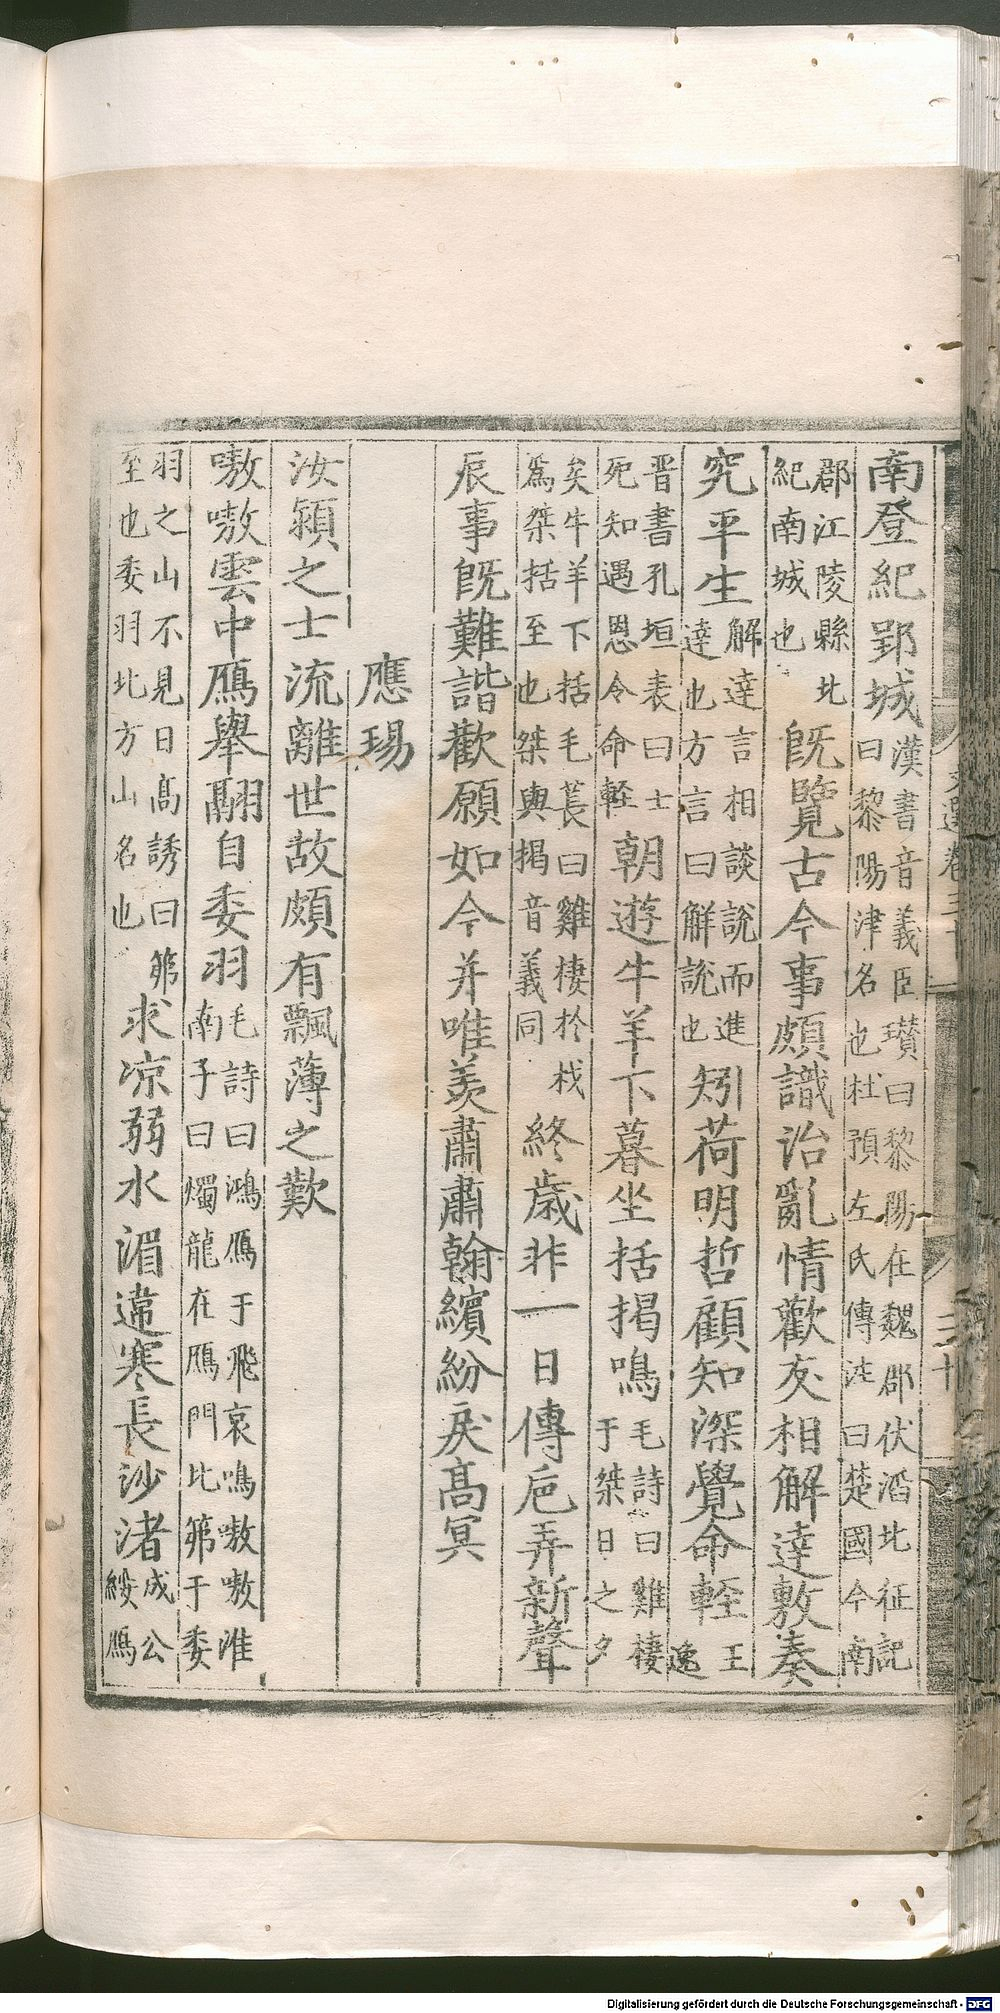 南登紀郢城漢書音義臣瓉曰黎陽在魏郡伏滔北征記曰黎陽津名也杜預左氏傳注曰楚國今南
郡江陵縣北紀南城也旣覽古今事頗識治亂情歡友相解達敷奏
究平生解達言相談說而進達也方言曰解說也矧荷明哲顧知深覺命輕王逸
晋書孔垣表曰士死知遇恩令命輕朝遊牛羊下暮坐括揭鳴毛詩曰雞棲于桀日之夕
矣牛羊下括毛萇曰雞棲於杙爲桀括至也桀與揭音義同終歳非一日傳巵弄新聲
辰事旣難諧歡願如今并唯羨肅肅翰繽紛戾髙冥
應瑒
汝潁之士流離世故頗有飄薄之歎
嗷嗷雲中鴈舉翮自委羽毛詩曰鴻鴈于飛哀鳴嗷嗷淮南子曰燭龍在鴈門北第于委
羽之山不見日髙誘曰第至也委羽北方山名也求凉弱水湄違寒長沙渚成公綏鴈
文選卷三十
三十
Digitalisierung gefördert durch die Deutsche Forschungsgemeinschaft - DFG